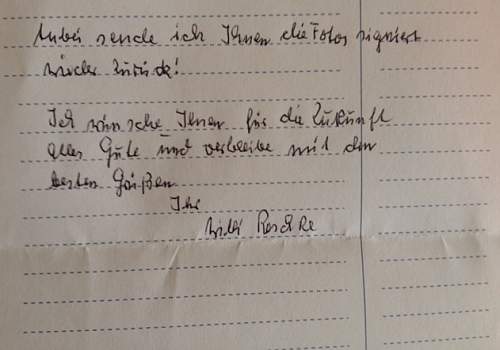 Anbei sende ich Ihnen die Fotos signiert
wieder zurück!
Ich wünsche Ihnen für die Zukunft
alles Gute und verbleibe mit den
besten Grüßen
Ihr
Reschke